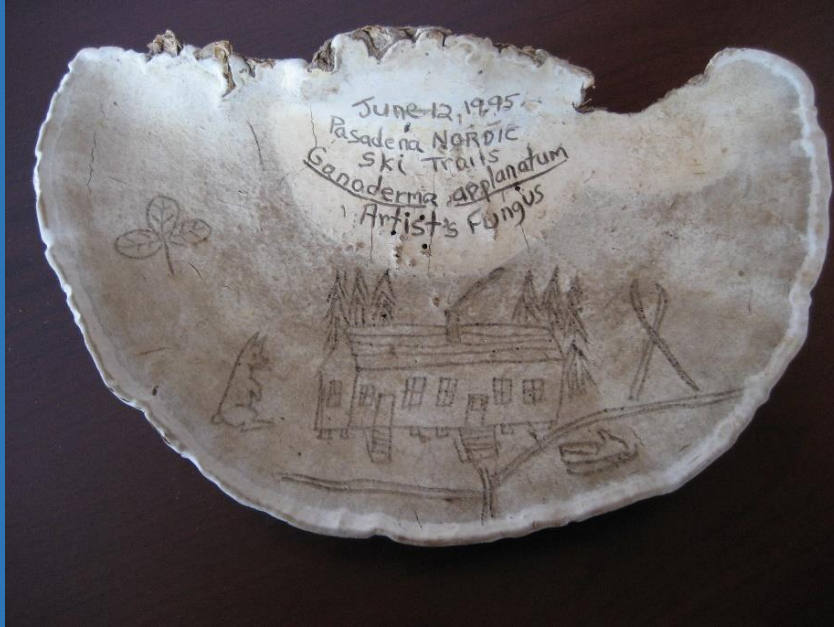 June 12, 1995
Pasadena NORDIC
Ski Trails
Ganoderma applanatum
Artist's Fungus